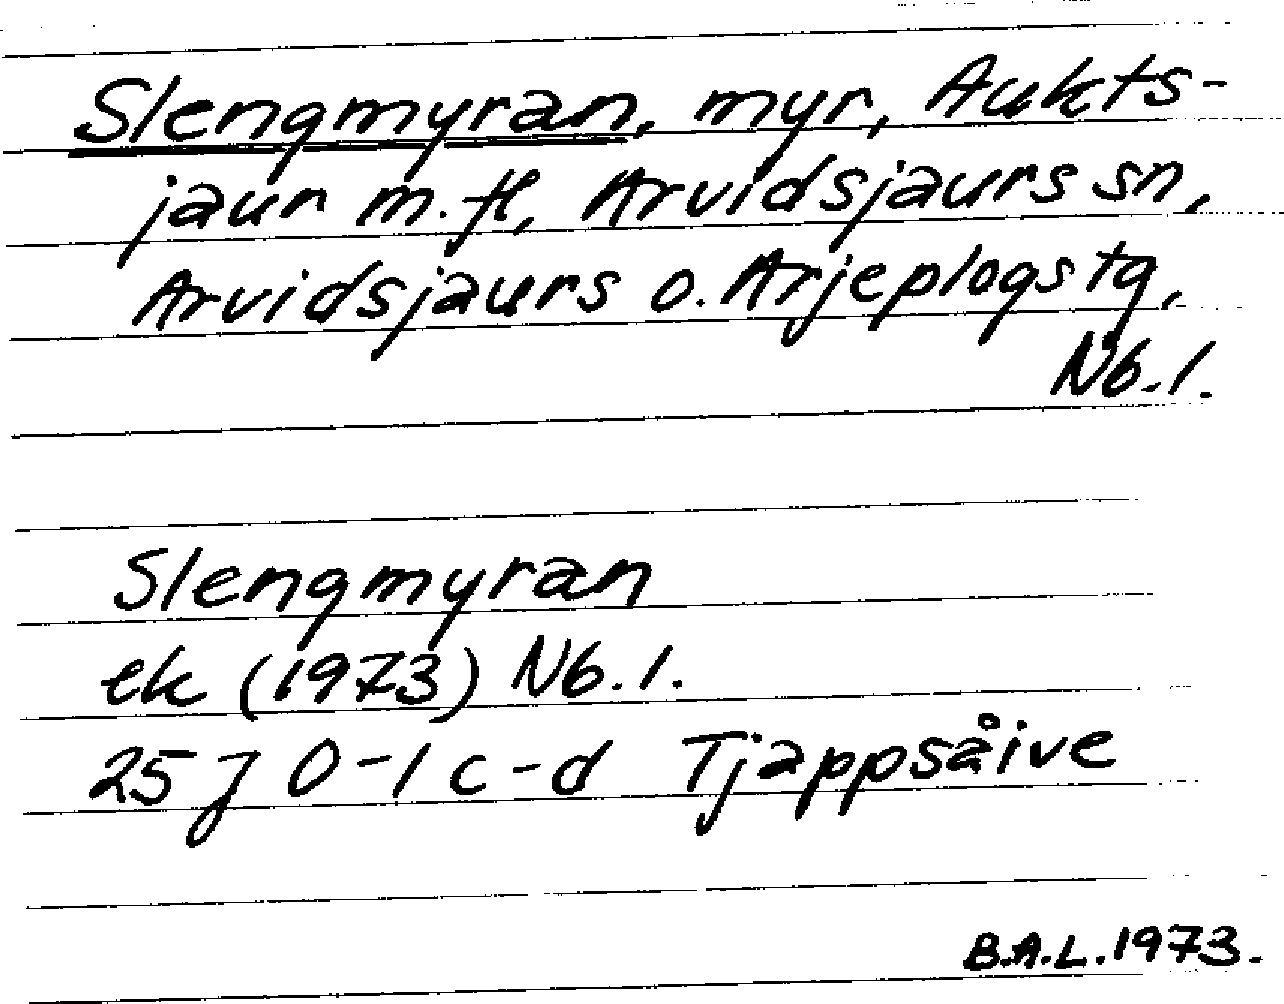 Slengmyran, myr, Aukts-
jaur m.fl, Arvidsjaurs sn,
Arvidsjaurs o. Arjeplogs tg,
Nb.l.
Slengmyran
ek (1973) Nb.l.
25 J 0-1 c-d Tjappsåive
B.A.L. 1973.